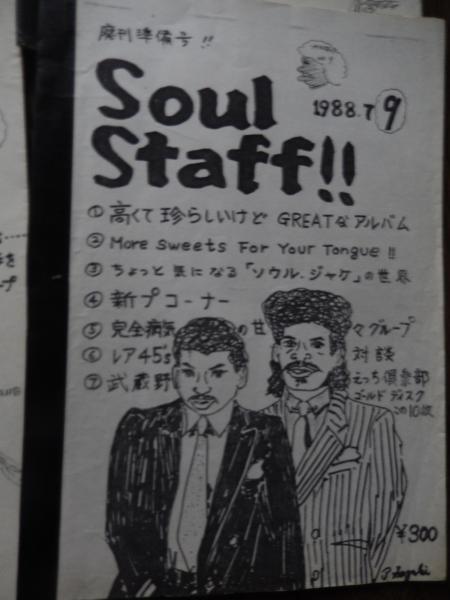 廃刊準備号!!
Soul
Staff!!
1988.7
9
① 高くて珍らしいけど GREATなアルバム
② More Sweets For Your Tongue !!
③ ちょっと気になる「ソウル・ジャケ」の世界
④ 新プコーナー
⑤ 完全病気 の甘 々グループ
⑥ レア45's 対談
⑦ 武蔵野 えっち倶楽部
ゴールドディスク
この10枚
¥300